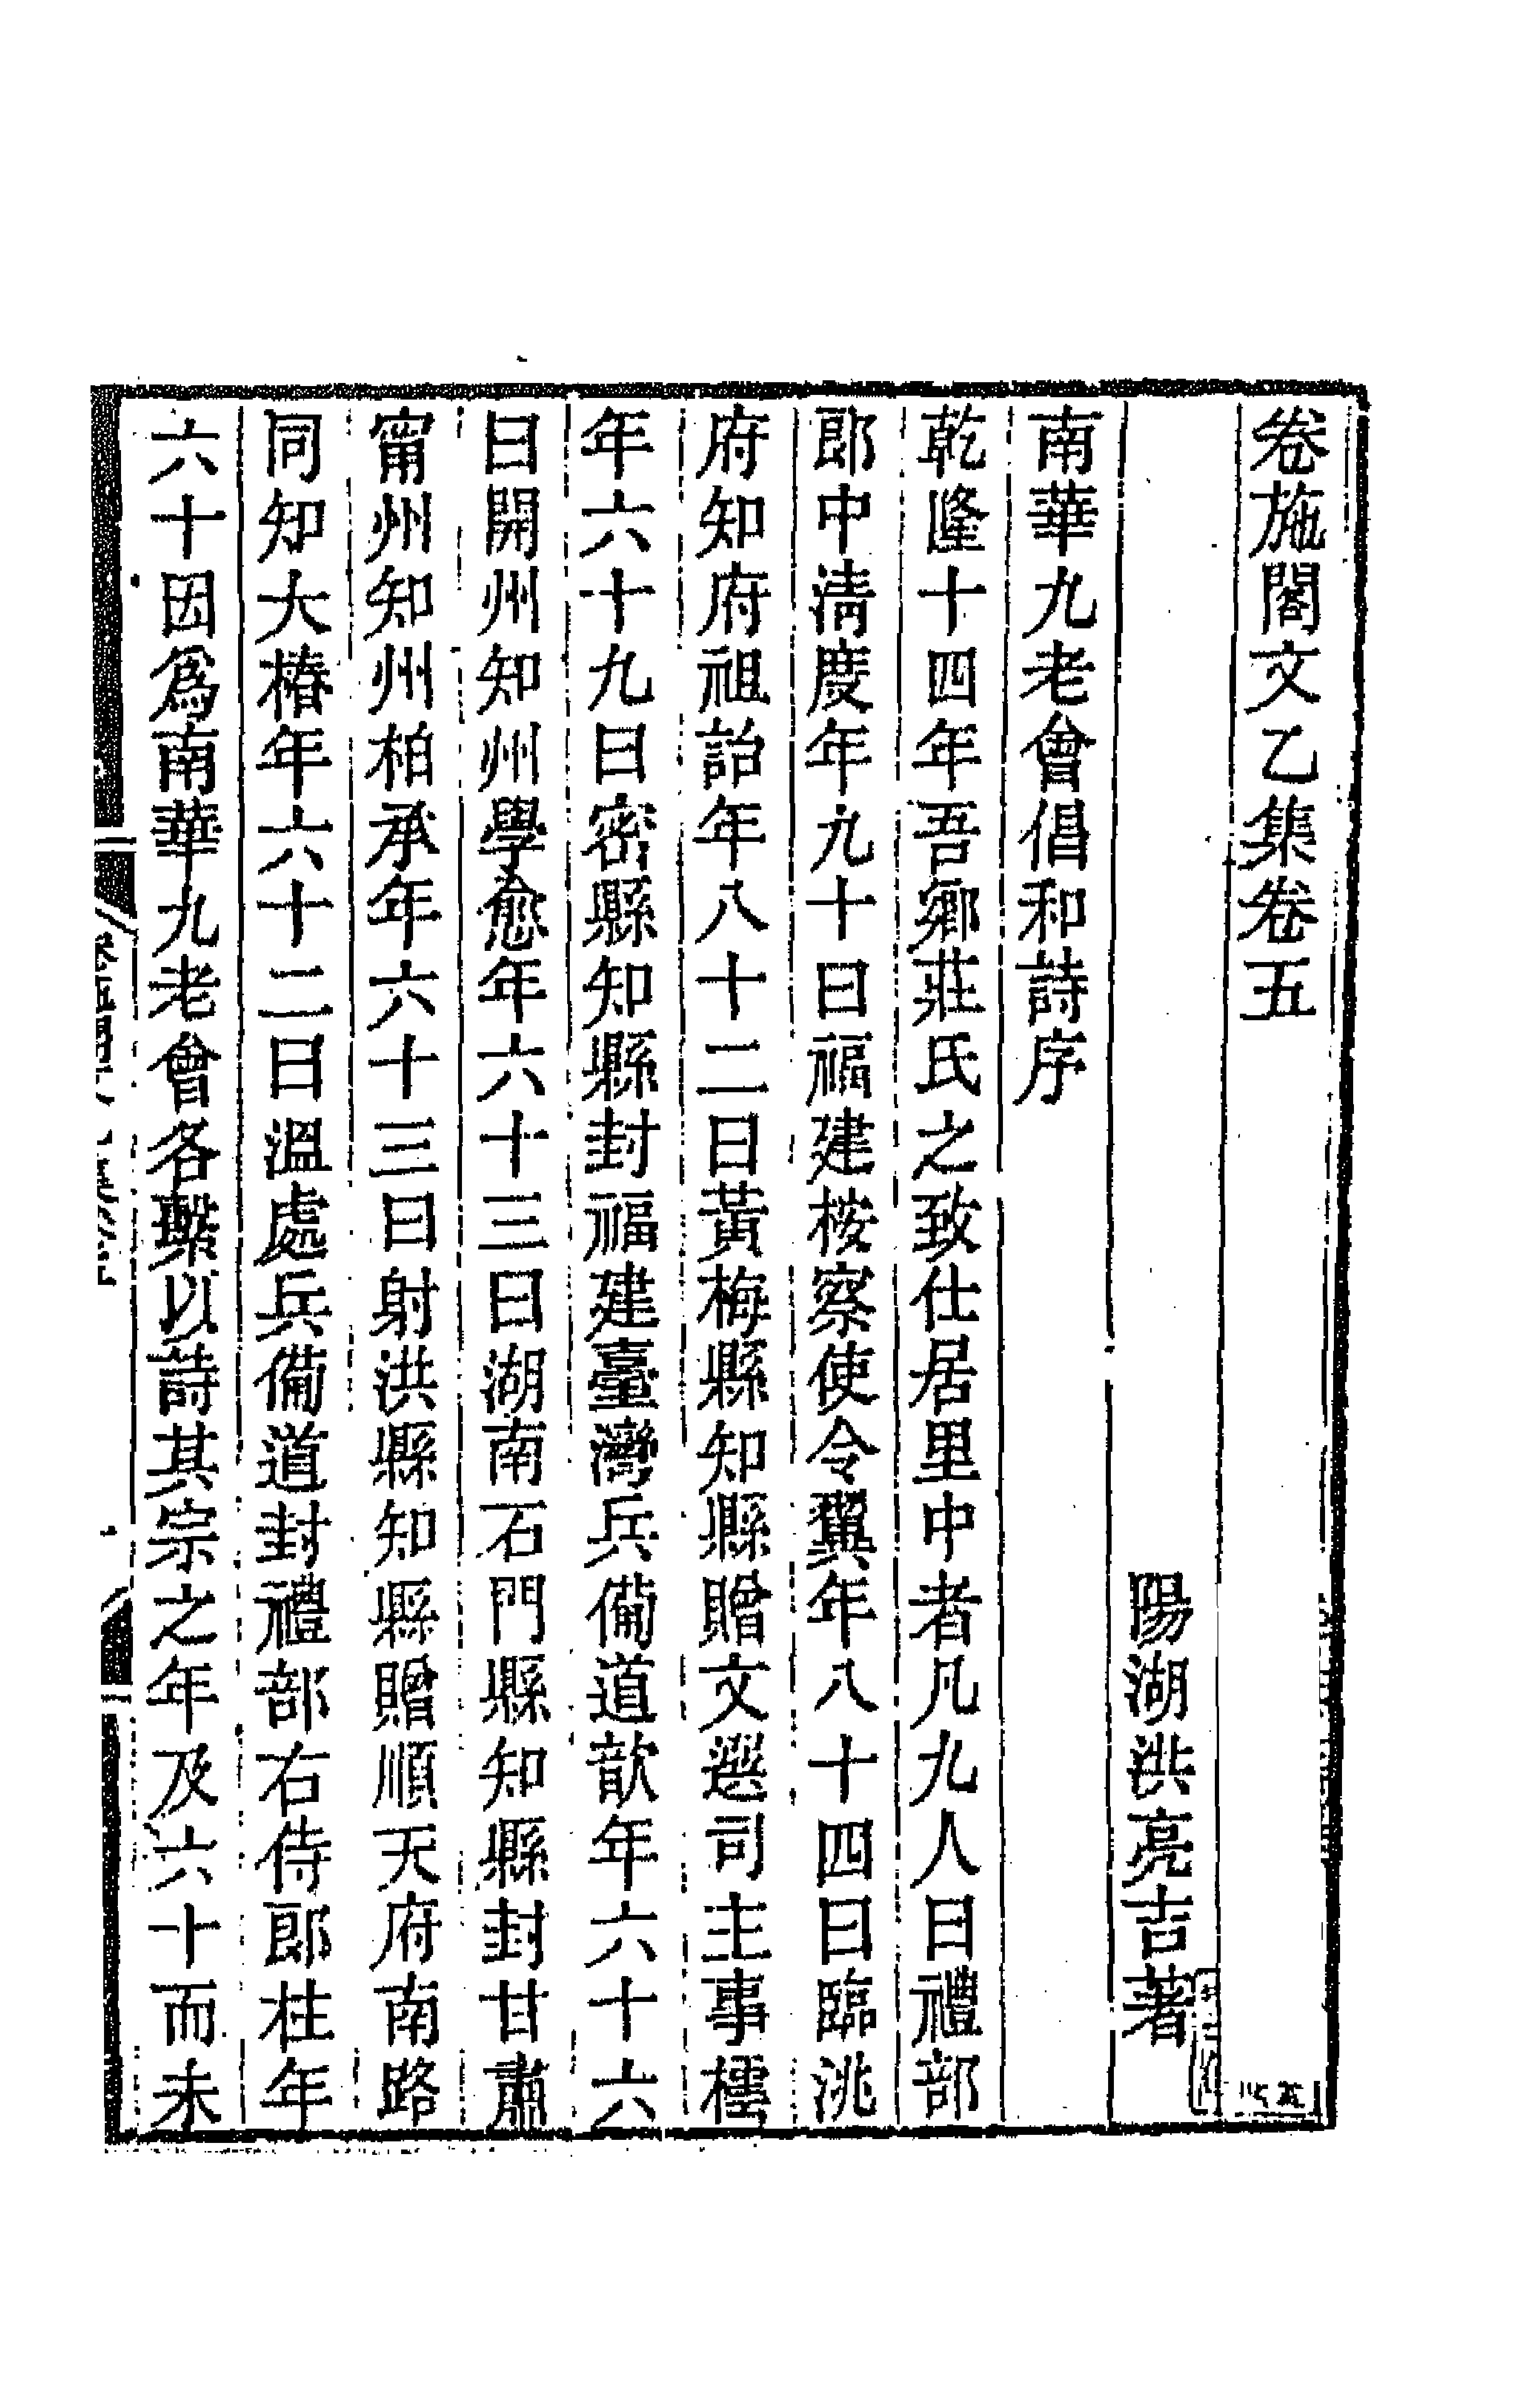 卷施閣文乙集卷五
陽湖洪亮吉著
南華九老會倡和詩序
乾隆十四年吾鄉莊氏之致仕居里中者凡九人曰禮部
郎中淸度年九十曰福建桉察使令翼年八十四曰臨洮
府知府祖詒年八十二曰黃梅縣知縣贈文選司主事檉
年六十九曰密縣知縣封福建臺灣兵備道歆年六十六
曰開州知州學愈年六十三曰湖南石門縣知縣封甘肅
甯州知州柏承年六十三曰射洪縣知縣贈順天府南路
同知大椿年六十二曰溫處兵備道封禮部右侍郎柱年
六十因爲南華九老會各繫以詩其宗之年及六十而未